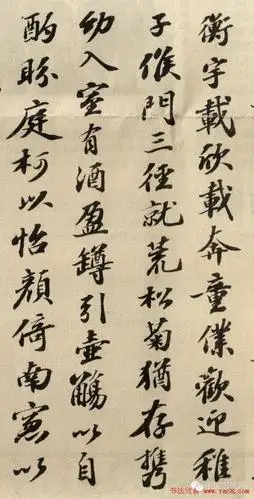 衡宇載欣載奔童僕歡迎稚
子候門三徑就荒松菊猶存攜
幼入室有酒盈鐏引壺觴以自
酌眄庭柯以怡顏倚南窻以
书法欣赏 www.yac8.com